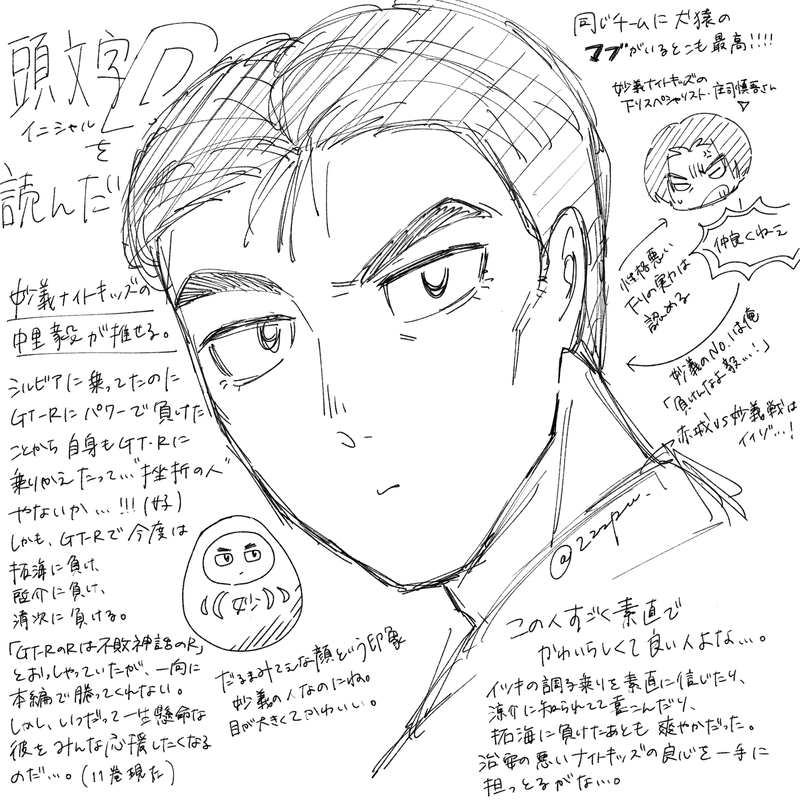 頭文字D
イニシャル
を
読んだ
妙義ナイトキッズの
中里毅が推せる。
シルビアに乗ってたのに
GT-Rにパワーで負けた
ことから自身もGT-Rに
乗りかえたって…"挫折の人"
やないか…!!!(好)
しかも、GT-Rで今度は
拓海に負け、
啓介に負け、
清次に負ける。
「GT-RのRは不敗神話のR」
とおっしゃっていたが、一向に
本編で勝ってくれない。
しかし、いつだって一生懸命な
彼をみんな応援したくなる
のだ…。(11巻現在)
妙
だるまみてェな顔という印象
妙義の人なのにね。
目が大きくてかわいい。
同じチームに犬猿の
マブがいるとこも最高!!!!
妙義ナイトキッズの
下りスペシャリスト・庄司慎吾さん
仲良くねーェ
性格悪い
下りの実力は
認める
妙義のNo.1は俺
「負けんなよ毅…!」
赤城VS妙義戦は
イイゾ…!
@zzzpw.
この人すごく素直で
かわいらしくて良い人よな…。
イツキの調子乗りを素直に信じたり、
涼介に知られてて喜こんだり、
拓海に負けたあとも爽やかだった。
治安の悪いナイトキッズの良心を一手に
担っとるがない…。